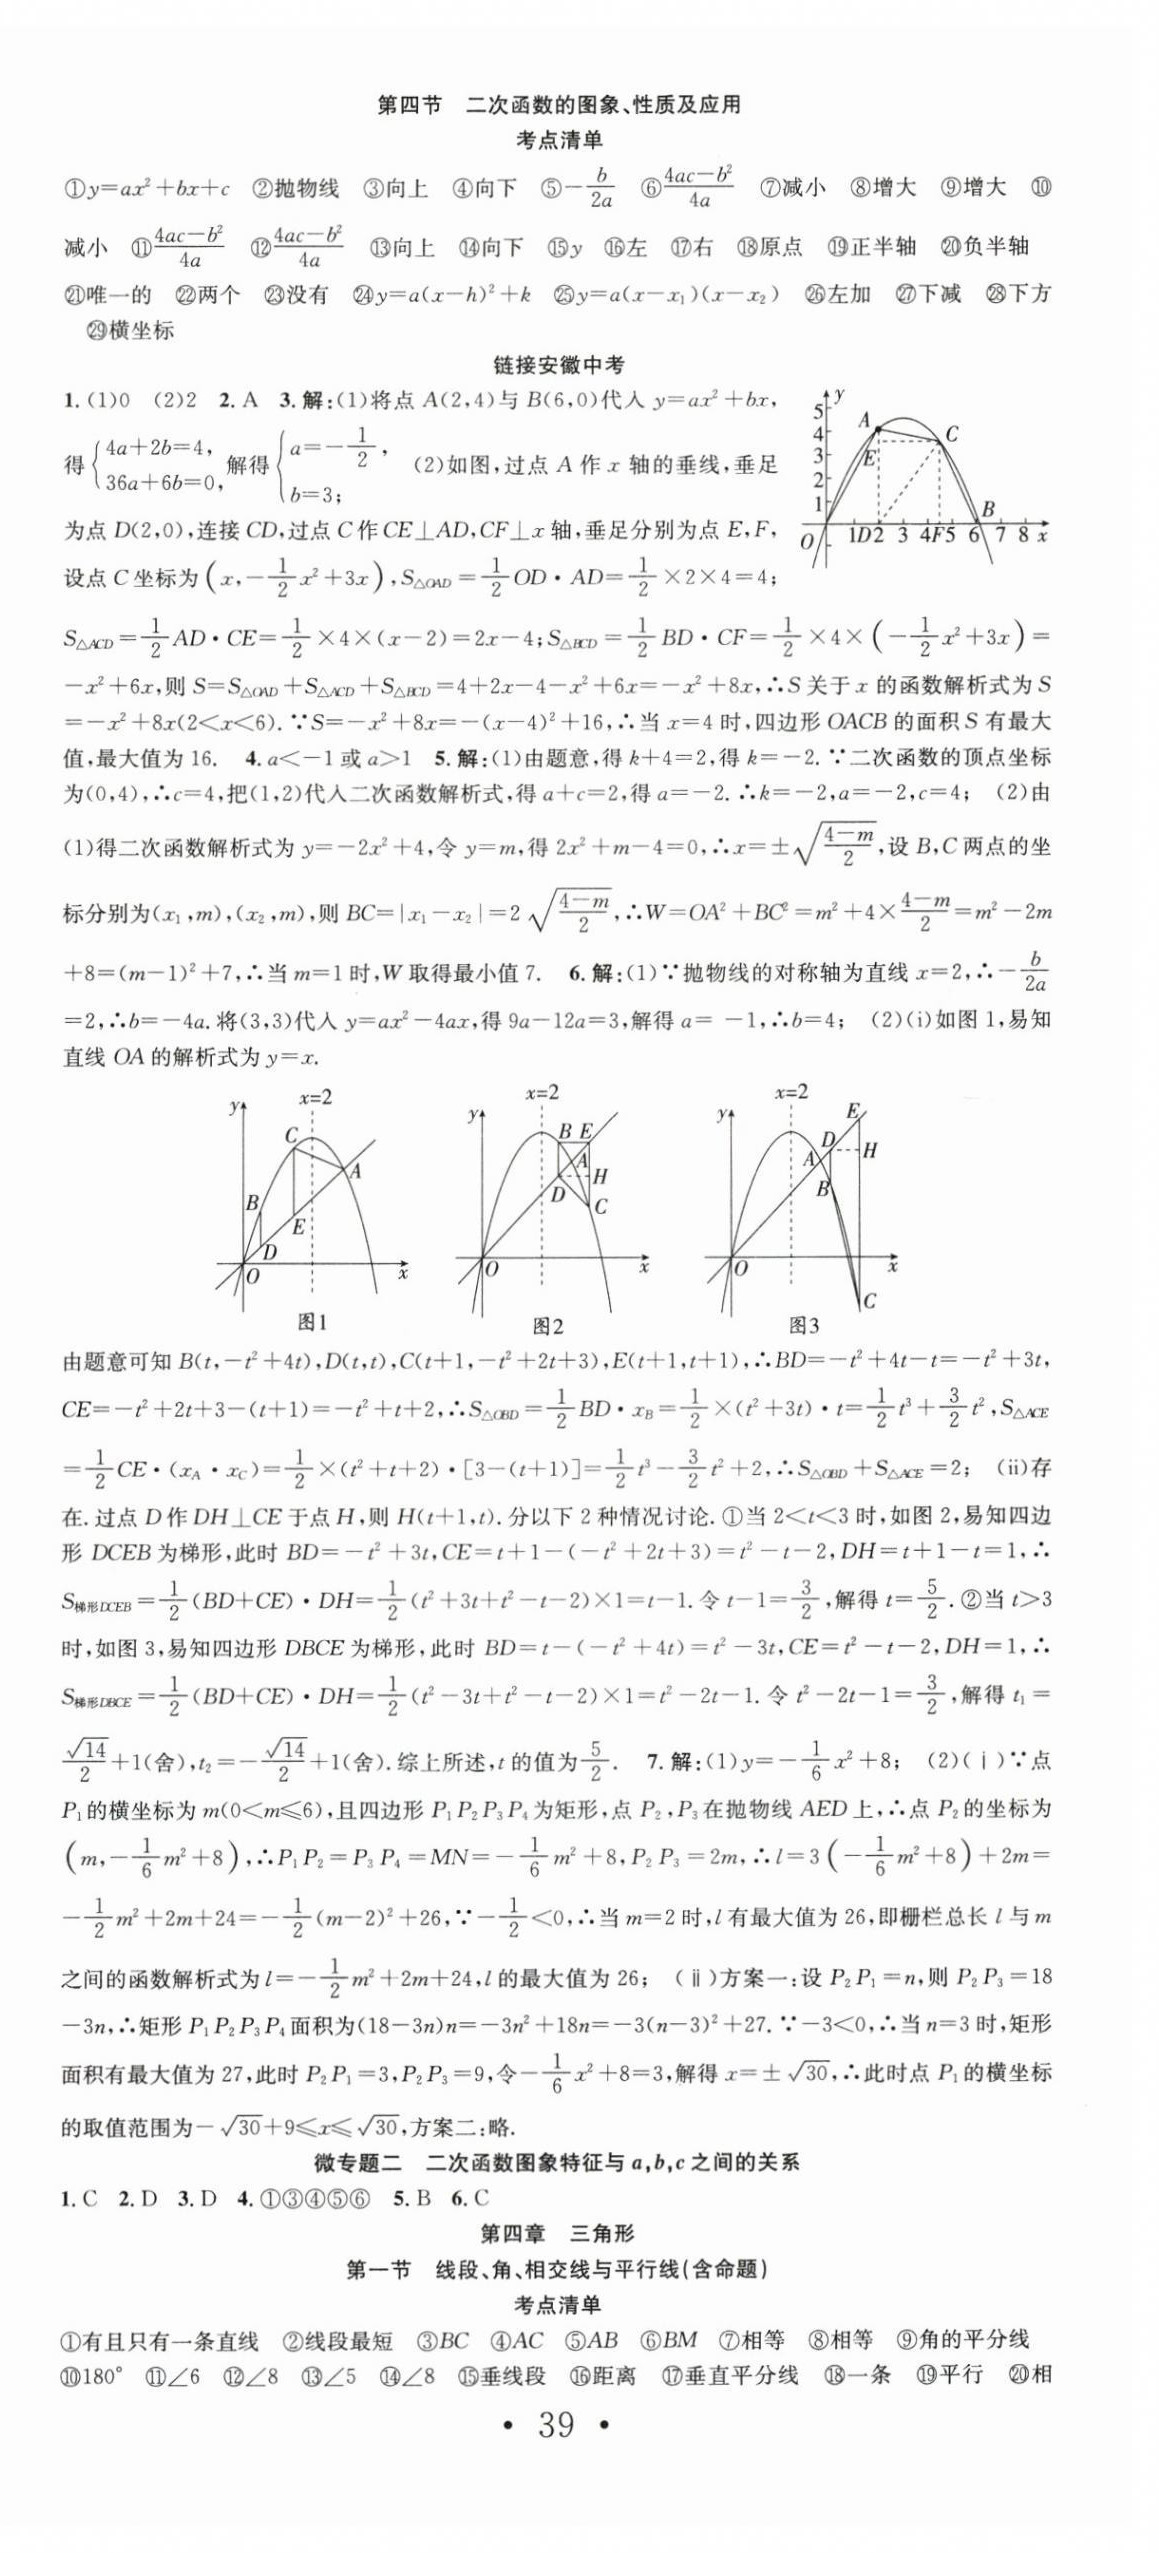 第四节 二次函数的图象、性质及应用
考点清单
①y=ax²+bx+c ②抛物线 ③向上 ④向下 ⑤-b/2a ⑥(4ac-b²)/4a ⑦减小 ⑧增大 ⑨增大 ⑩
减小 ⑪(4ac-b²)/4a ⑫(4ac-b²)/4a ⑬向上 ⑭向下 ⑮y ⑯左 ⑰右 ⑱原点 ⑲正半轴 ⑳负半轴
㉑唯一的 ㉒两个 ㉓没有 ㉔y=a(x-h)²+k ㉕y=a(x-x₁)(x-x₂) ㉖左加 ㉗下减 ㉘下方
㉙横坐标
链接安徽中考
1. (1)0 (2)2 2. A 3. 解:(1)将点A(2,4)与B(6,0)代入y=ax²+bx,
得{4a+2b=4, 36a+6b=0, 解得{a=-1/2, b=3; (2)如图,过点A作x轴的垂线,垂足
为点D(2,0),连接CD,过点C作CE⊥AD,CF⊥x轴,垂足分别为点E,F,
设点C坐标为(x,-1/2x²+3x),S△OAD=1/2OD·AD=1/2×2×4=4;
y 5 4 3 2 1 A E C B O 1D2 3 4F5 6 7 8 x
S△ACD=1/2AD·CE=1/2×4×(x-2)=2x-4;S△BCD=1/2BD·CF=1/2×4×(-1/2x²+3x)=
-x²+6x,则S=S△OAD+S△ACD+S△BCD=4+2x-4-x²+6x=-x²+8x,∴S关于x的函数解析式为S
=-x²+8x(2<x<6).∵S=-x²+8x=-(x-4)²+16,∴当x=4时,四边形OACB的面积S有最大
值,最大值为16. 4. a<-1或a>1 5. 解:(1)由题意,得k+4=2,得k=-2.∵二次函数的顶点坐标
为(0,4),∴c=4,把(1,2)代入二次函数解析式,得a+c=2,得a=-2.∴k=-2,a=-2,c=4; (2)由
(1)得二次函数解析式为y=-2x²+4,令y=m,得2x²+m-4=0,∴x=±√((4-m)/2),设B,C两点的坐
标分别为(x₁,m),(x₂,m),则BC=|x₁-x₂|=2√((4-m)/2),∴W=OA²+BC²=m²+4×(4-m)/2=m²-2m
+8=(m-1)²+7,∴当m=1时,W取得最小值7. 6. 解:(1)∵抛物线的对称轴为直线x=2,∴-b/2a
=2,∴b=-4a.将(3,3)代入y=ax²-4ax,得9a-12a=3,解得a= -1,∴b=4; (2)(ⅰ)如图1,易知
直线OA的解析式为y=x.
y x=2 C A B E D O x 图1
y x=2 B E A H D C O x 图2
y x=2 E D H A B O x C 图3
由题意可知B(t,-t²+4t),D(t,t),C(t+1,-t²+2t+3),E(t+1,t+1),∴BD=-t²+4t-t=-t²+3t,
CE=-t²+2t+3-(t+1)=-t²+t+2,∴S△OBD=1/2BD·x_B=1/2×(t²+3t)·t=1/2t³+3/2t²,S△ACE
=1/2CE·(x_A·x_C)=1/2×(t²+t+2)·[3-(t+1)]=1/2t³-3/2t²+2,∴S△OBD+S△ACE=2; (ⅱ)存
在.过点D作DH⊥CE于点H,则H(t+1,t).分以下2种情况讨论.①当2<t<3时,如图2,易知四边
形DCEB为梯形,此时BD=-t²+3t,CE=t+1-(-t²+2t+3)=t²-t-2,DH=t+1-t=1,∴
S梯形DCEB=1/2(BD+CE)·DH=1/2(t²+3t+t²-t-2)×1=t-1.令t-1=3/2,解得t=5/2.②当t>3
时,如图3,易知四边形DBCE为梯形,此时BD=t-(-t²+4t)=t²-3t,CE=t²-t-2,DH=1,∴
S梯形DBCE=1/2(BD+CE)·DH=1/2(t²-3t+t²-t-2)×1=t²-2t-1.令t²-2t-1=3/2,解得t₁=
√14/2+1(舍),t₂=-√14/2+1(舍).综上所述,t的值为5/2. 7. 解:(1)y=-1/6x²+8; (2)(ⅰ)∵点
P₁的横坐标为m(0<m≤6),且四边形P₁P₂P₃P₄为矩形,点P₂,P₃在抛物线AED上,∴点P₂的坐标为
(m,-1/6m²+8),∴P₁P₂=P₃P₄=MN=-1/6m²+8,P₂P₃=2m,∴l=3(-1/6m²+8)+2m=
-1/2m²+2m+24=-1/2(m-2)²+26,∵-1/2<0,∴当m=2时,l有最大值为26,即栅栏总长l与m
之间的函数解析式为l=-1/2m²+2m+24,l的最大值为26; (ⅱ)方案一:设P₂P₁=n,则P₂P₃=18
-3n,∴矩形P₁P₂P₃P₄面积为(18-3n)n=-3n²+18n=-3(n-3)²+27.∵-3<0,∴当n=3时,矩形
面积有最大值为27,此时P₂P₁=3,P₂P₃=9,令-1/6x²+8=3,解得x=±√30,∴此时点P₁的横坐标
的取值范围为-√30+9≤x≤√30,方案二:略.
微专题二 二次函数图象特征与a,b,c之间的关系
1. C 2. D 3. D 4. ①③④⑤⑥ 5. B 6. C
第四章 三角形
第一节 线段、角、相交线与平行线(含命题)
考点清单
①有且只有一条直线 ②线段最短 ③BC ④AC ⑤AB ⑥BM ⑦相等 ⑧相等 ⑨角的平分线
⑩180° ⑪∠6 ⑫∠8 ⑬∠5 ⑭∠8 ⑮垂线段 ⑯距离 ⑰垂直平分线 ⑱一条 ⑲平行 ⑳相
· 39 ·